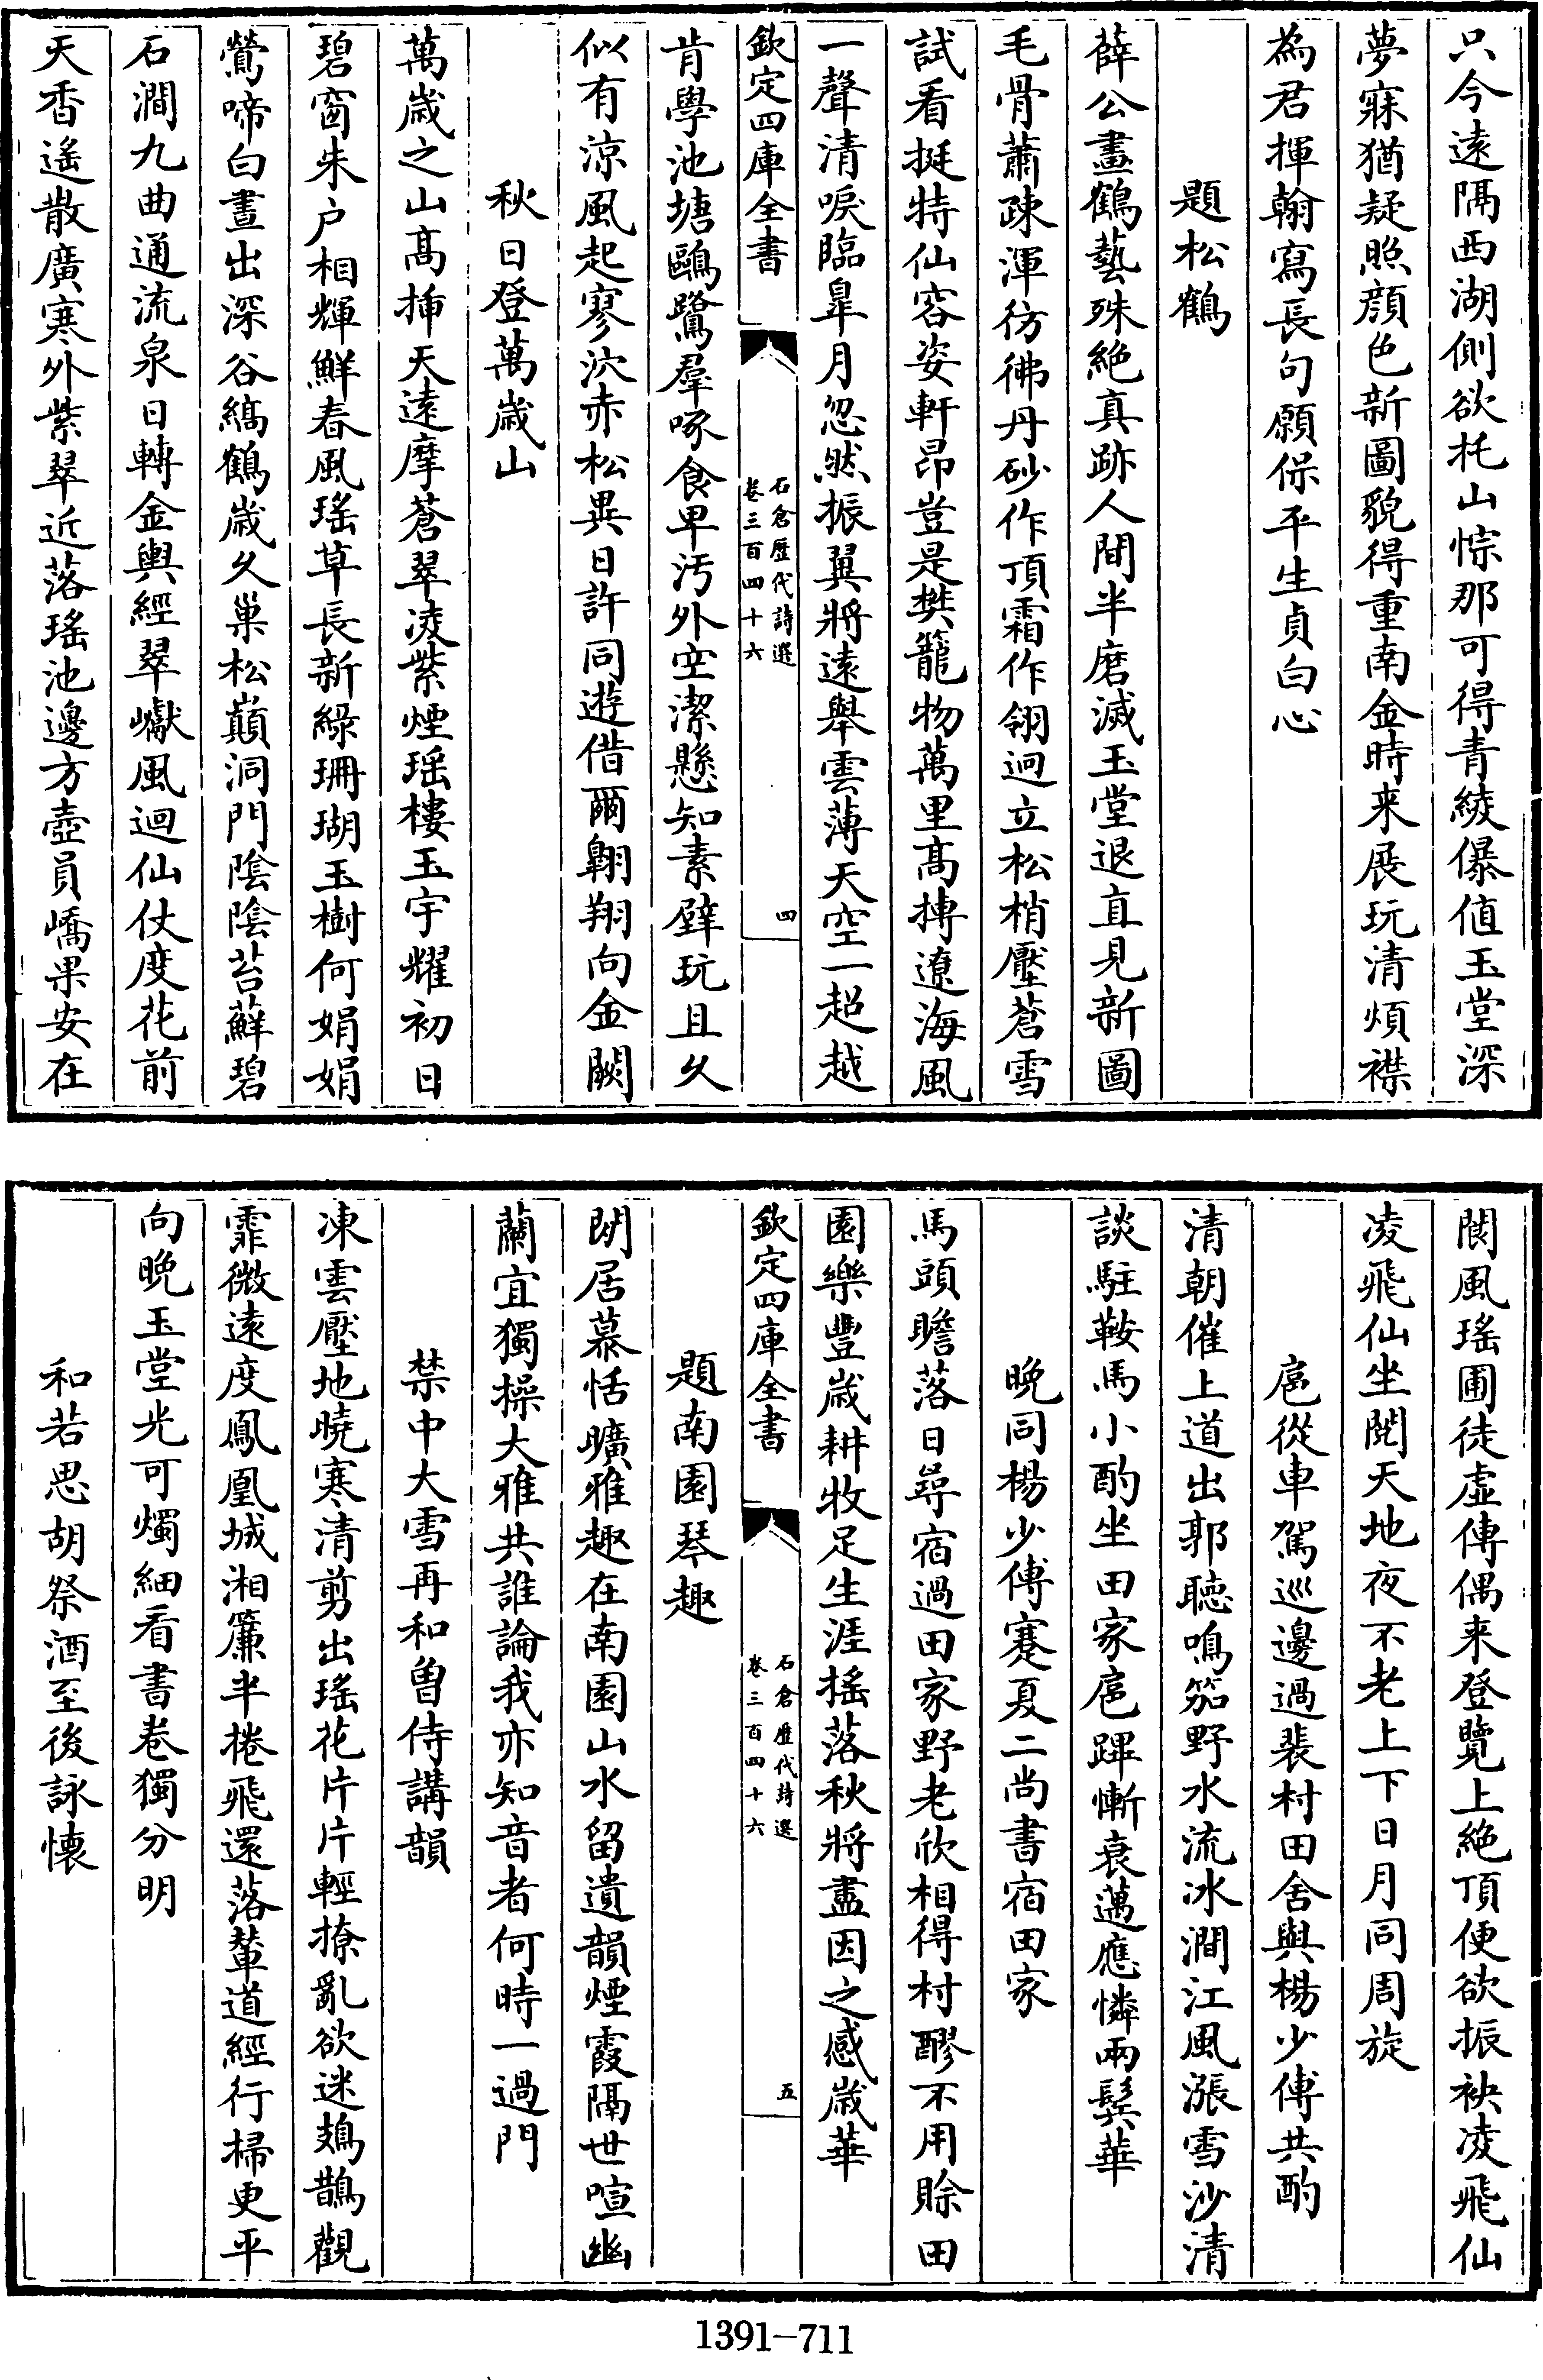 只今遠隔西湖側欲托山悰那可得青綾儤值玉堂深
夢寐猶疑照顔色新圖貌得重南金時来展玩清煩襟
為君揮翰寫長句願保平生貞白心
題松鶴
薛公畫鶴藝殊絶真跡人間半磨滅玉堂退直見新圖
毛骨蕭疎渾彷彿丹砂作頂霜作翎迥立松梢壓蒼雪
試看挺特仙客姿軒昂豈是樊籠物萬里髙摶遼海風
一聲清唳臨臯月忽然振翼將遠舉雲薄天空一超越
欽定四庫全書
石倉歷代詩選
卷三百四十六
四
肯學池塘鷗鷺羣啄食卑汚外空潔懸知素壁玩且久
似有涼風起寥泬赤松異日許同遊借爾翺翔向金闕
秋日登萬歲山
萬歲之山髙揷天遠摩蒼翠凌紫煙瑶樓玉宇耀初日
碧窗朱户相輝鮮春風瑤草長新綠珊瑚玉樹何娟娟
鶯啼白晝出深谷縞鶴歲久巢松巔洞門陰陰苔蘚碧
石澗九曲通流泉日轉金輿經翠巘風迴仙仗度花前
天香遥散廣寒外紫翠近落瑤池邊方壺員嶠果安在
閬風瑤圃徒虚傳偶来登覽上絶頂便欲振袂凌飛仙
凌飛仙坐閱天地夜不老上下日月同周旋
扈從車駕巡邊過裴村田舍與楊少傅共酌
清朝催上道出郭聴鳴笳野水流冰澗江風漲雪沙清
談駐鞍馬小酌坐田家扈蹕慚衰邁應憐兩鬢華
晚同楊少傅蹇夏二尚書宿田家
馬頭瞻落日尋宿過田家野老欣相得村醪不用賒田
園樂豐歲耕牧足生涯搖落秋將盡因之感歲華
欽定四庫全書
石倉歷代詩選
卷三百四十六
五
題南園琴趣
閒居慕恬曠雅趣在南園山水留遺韻煙霞隔世喧幽
蘭宜獨操大雅共誰論我亦知音者何時一過門
禁中大雪再和曽侍講韻
凍雲壓地曉寒清剪出瑤花片片輕撩亂欲迷鳷鵲觀
霏微遠度鳳凰城湘簾半捲飛還落輦道經行掃更平
向晚玉堂光可燭細看書巻獨分明
和若思胡祭酒至後詠懷
1391—711